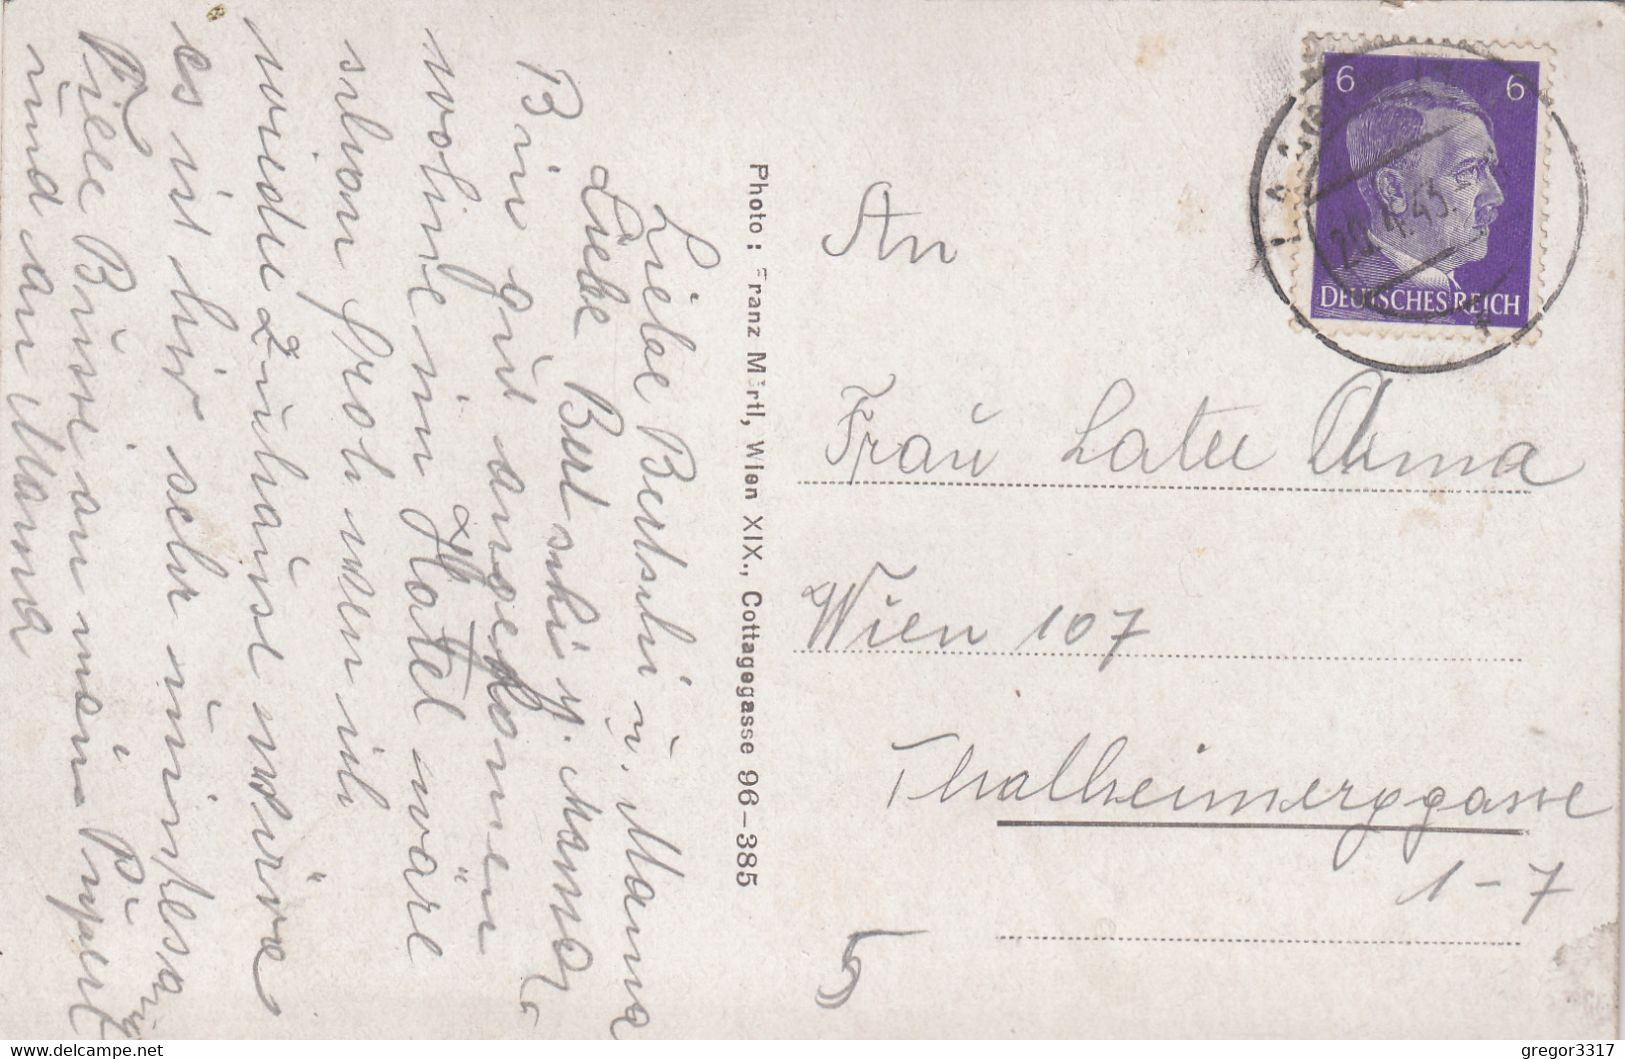 Liebe Bertschi u. Mama
Liebe Bertschi u. Mama
Bin gut angekommen
wohne im Hotel wäre
schon froh wen ich
wieder Zuhause wäre
es ist hir sehr
Viele Bussi an mein Pupperl
und an Mama
Photo: Franz Mörtl, Wien XIX., Cottagegasse 96-385
6 6
DEUTSCHES REICH
20.4.43.
An
Frau Later Anna
Wien 107
Thalheimerggasse
1-7
5
gregor3317